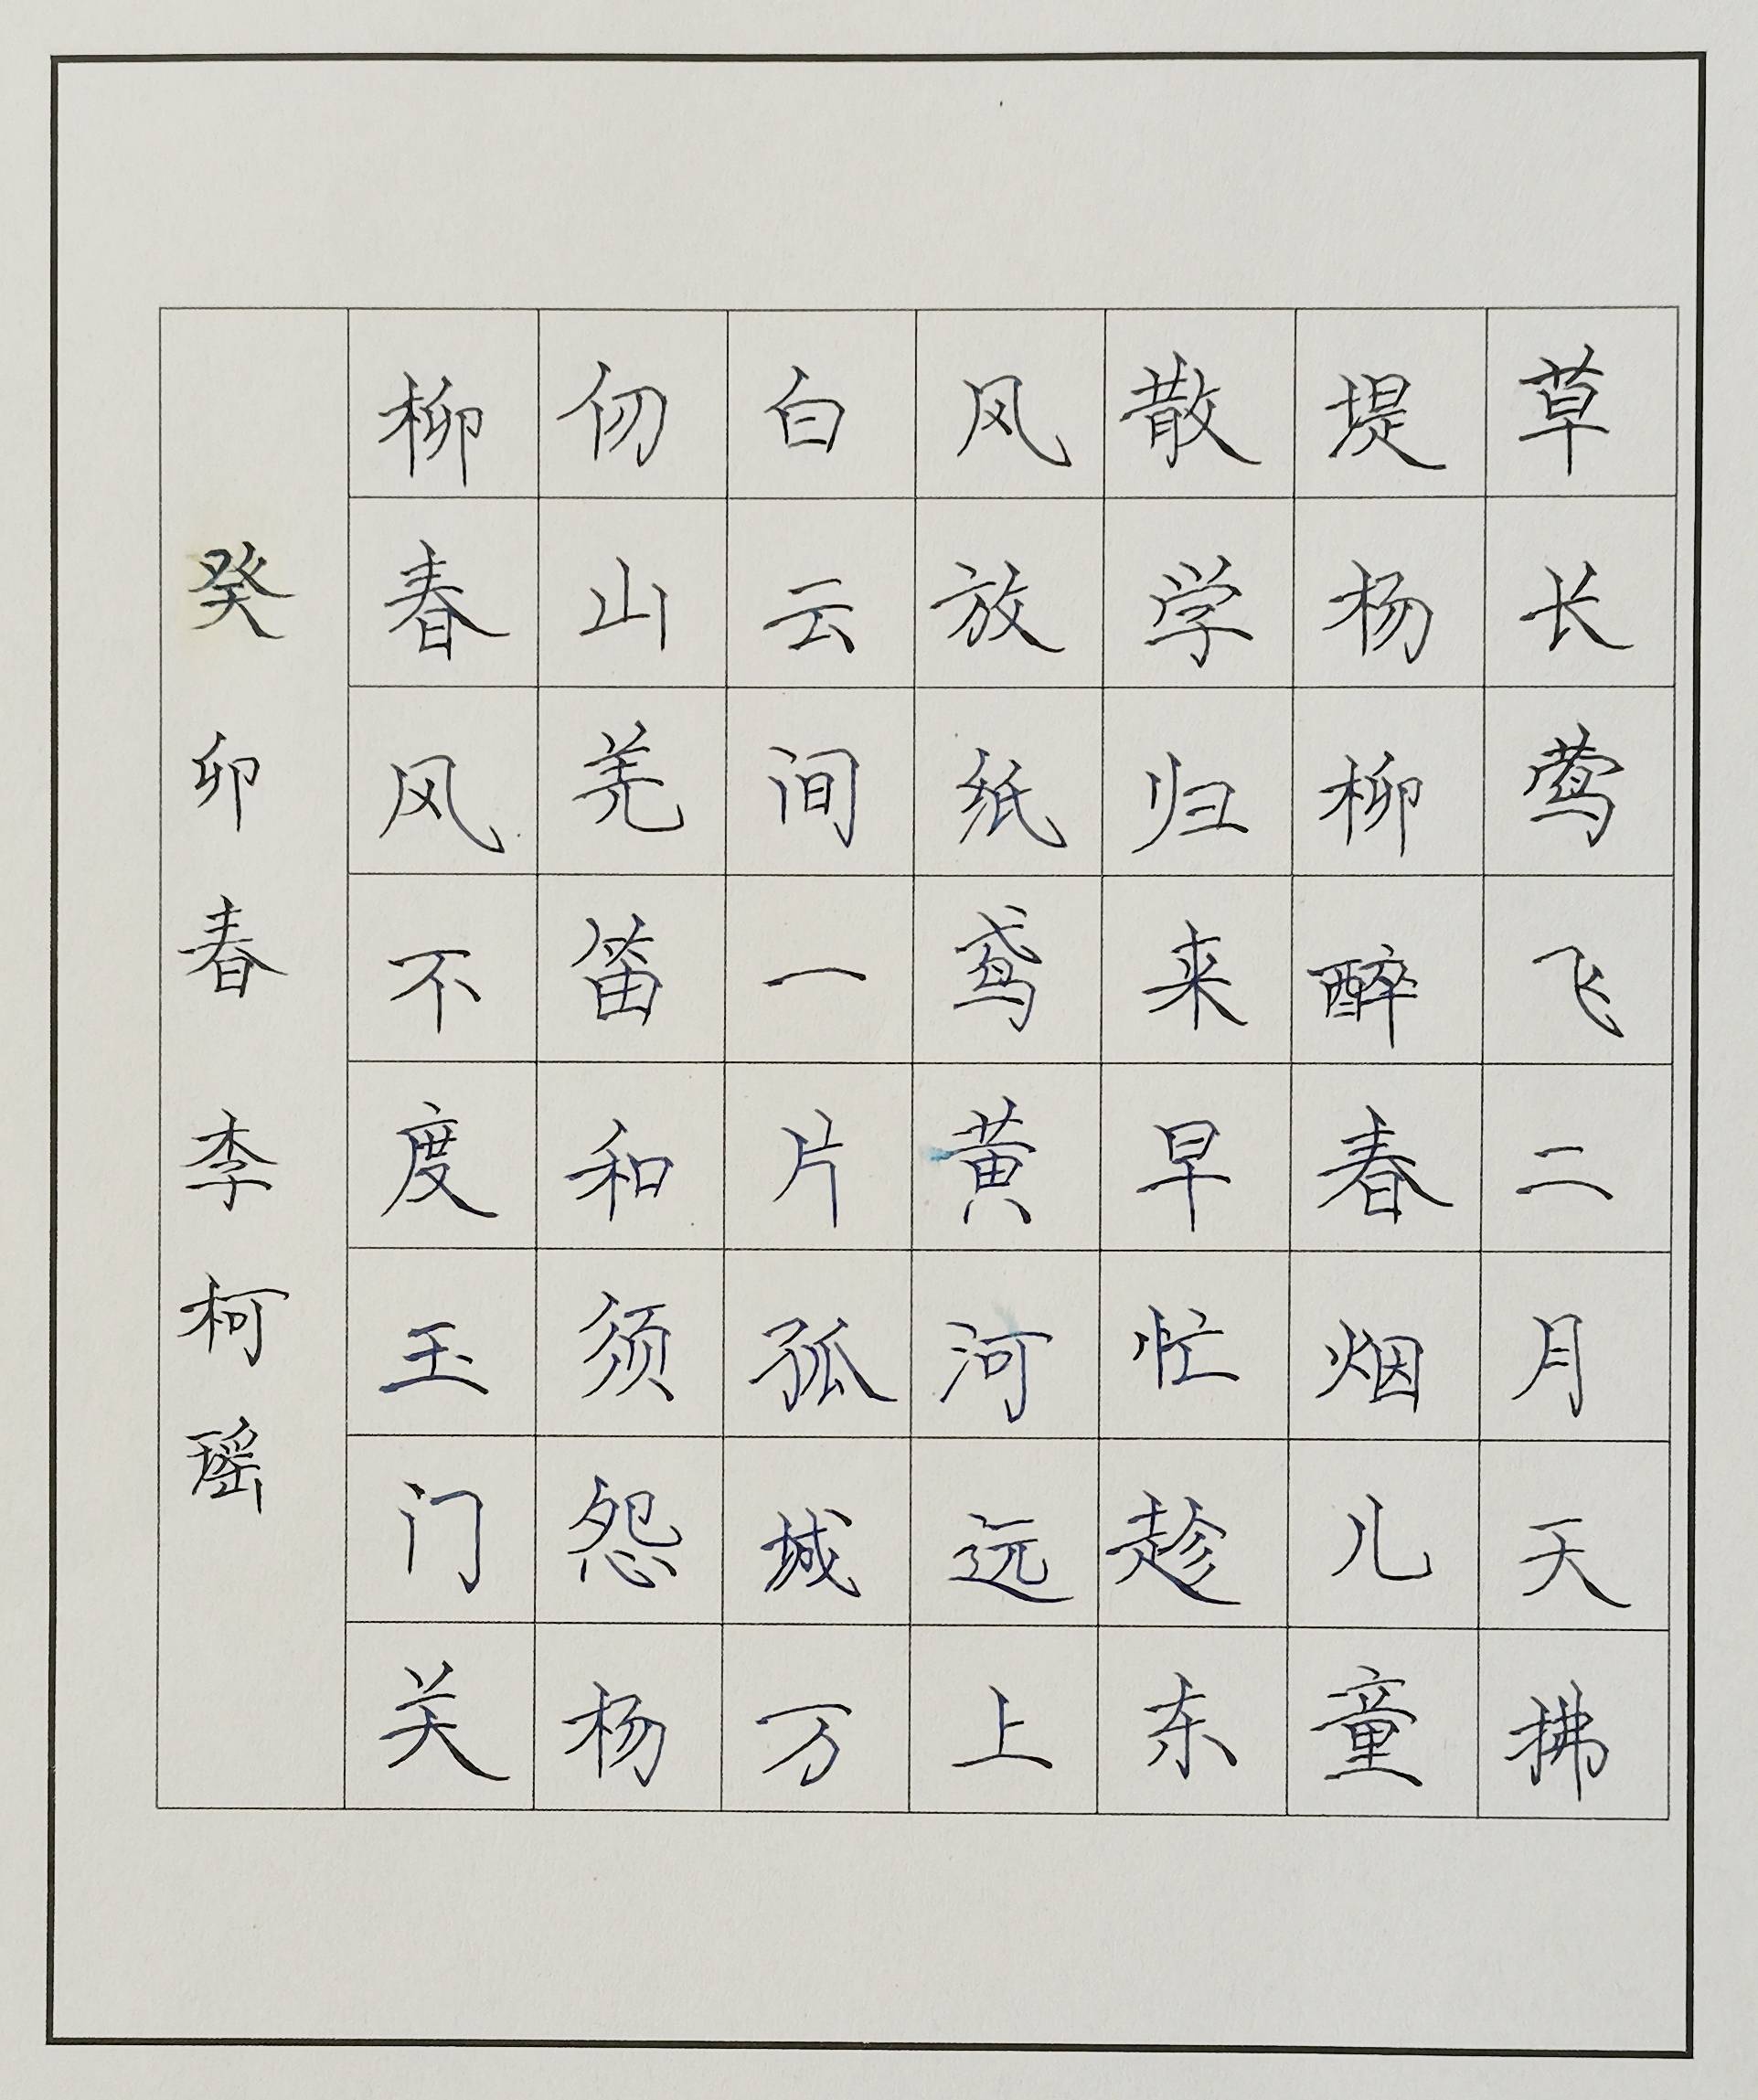 草长莺飞二月天拂
堤杨柳醉春烟儿童
散学归来早忙趁东
风放纸鸢黄河远上
白云间一片孤城万
仞山羌笛和须怨杨
柳春风不度玉门关
癸卯春李柯瑶